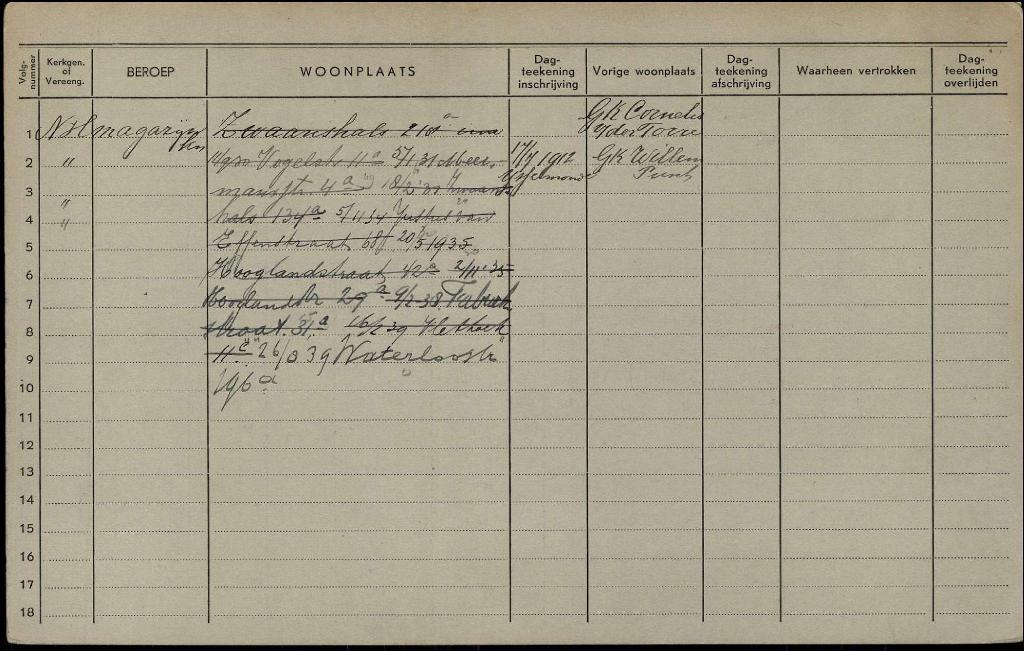 Volg-nummer
Kerkgen. of Vereeng.
BEROEP
WOONPLAATS
Dag-teekening inschrijving
Vorige woonplaats
Dag-teekening afschrijving
Waarheen vertrokken
Dag-teekening overlijden
1 NH magazijn kn Zwaanshals 218 GK Cornelis
Y der Torre
2 " Vogelstr. 11a 5/1 31 17/7 1912 GK Willem
3 4a 18/2 '31 Zwaans IJsselmonde
4 " hals 134a 5/11 34 Justus van
"
5 Effenstraat 68 20/5 1935
6 Hooglandstraat 42a 2/11 '35
7 Hooglandstr 29a 9/2 38 Fabriek
8 straat 31a 16/2 39 Vlethoek
9 11c 26/8 39 Waterloostr
10 196a
11
12
13
14
15
16
17
18